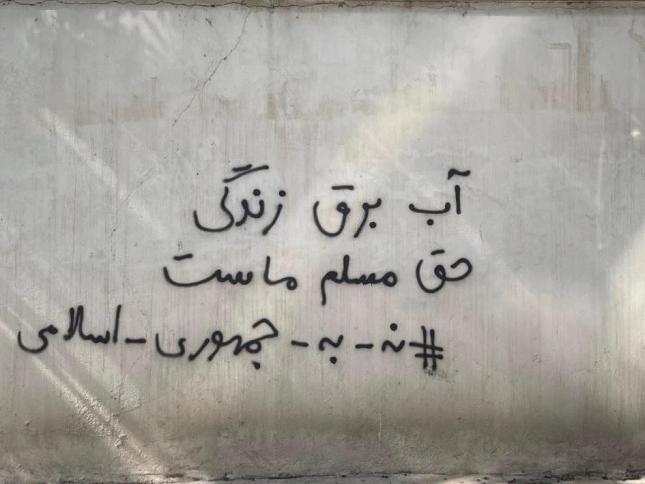 آب برق زندگی
حق مسلم ماست
#نه-به-جمهوری-اسلامی